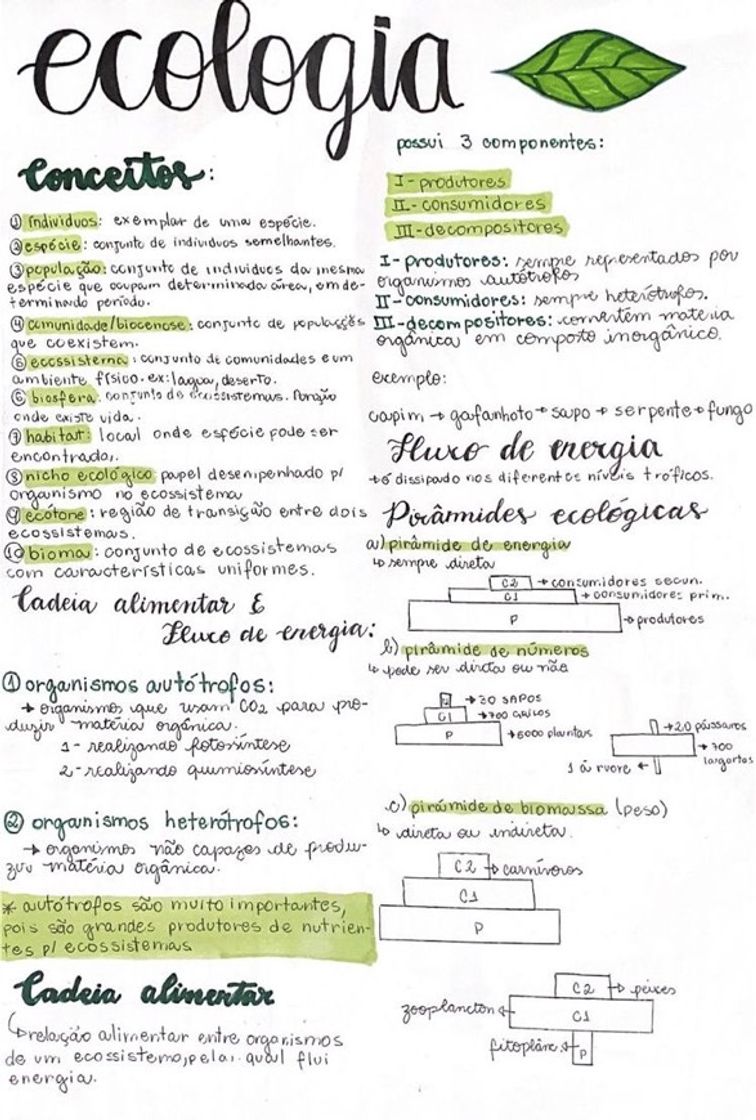 ecologia
Conceitos:
① indivíduos: exemplar de uma espécie.
② espécie: conjunto de individuos semelhantes.
③ população: conjunto de individuos da mesma
espécie que ocupam determinada área, em de-
terminado período.
④ comunidade/biocenose: conjunto de populações
que coexistem.
⑤ ecossistema: conjunto de comunidades e um
ambiente físico. ex: lagoa, deserto.
⑥ biosfera: conjunto de ecossistemas. Porção
onde existe vida.
⑦ habitat: local onde espécie pode ser
encontrada.
⑧ nicho ecológico papel desempenhado p/
organismo no ecossistema
⑨ ecótone: região de transição entre dois
ecossistemas.
⑩ bioma: conjunto de ecossistemas
com características uniformes.
Cadeia alimentar &
Fluxo de energia:
① organismos autótrofos:
→ organismos que usam CO2 para pro-
duzir matéria orgânica.
1- realizando fotossíntese
2- realizando quimiossíntese
② organismos heterótrofos:
→ organismos não capazes de produ-
zir matéria orgânica.
* autótrofos são muito importantes,
pois são grandes produtores de nutrien-
tes p/ ecossistemas
Cadeia alimentar
↳ relação alimentar entre organismos
de um ecossistema, pela qual flui
energia.
possui 3 componentes:
I- produtores
II- consumidores
III- decompositores
I- produtores: sempre representados por
organismos autótrofos
II- consumidores: sempre heterótrofos.
III- decompositores: convertem matéria
orgânica em composto inorgânico.
exemplo:
capim → gafanhoto → sapo → serpente → fungo
Fluxo de energia
→ é dissipado nos diferentes níveis tróficos.
Pirâmides ecológicas
a) pirâmide de energia
↳ sempre direta
C2 → consumidores secun.
C1 → consumidores prim.
P → produtores
b) pirâmide de números
↳ pode ser direta ou não
→ 30 SAPOS
C1 → 700 GRILOS
P → 5000 plantas
→ 20 pássaros
→ 700
lagartas
1 árvore ←
c) pirâmide de biomassa (peso)
↳ direta ou indireta.
C2 → carnívoros
C1
P
C2 → peixes
zooplancton ← C1
fitoplânc. ← P